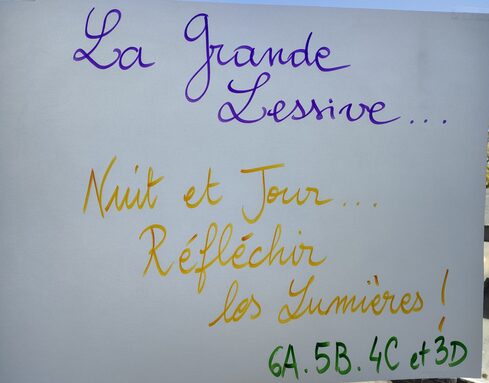 La grande
Lessive...
Nuit et Jour...
Réfléchir
les Lumières !
6A. 5B. 4C et 3D